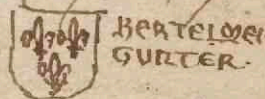 BERTELMEI
GUNTER·